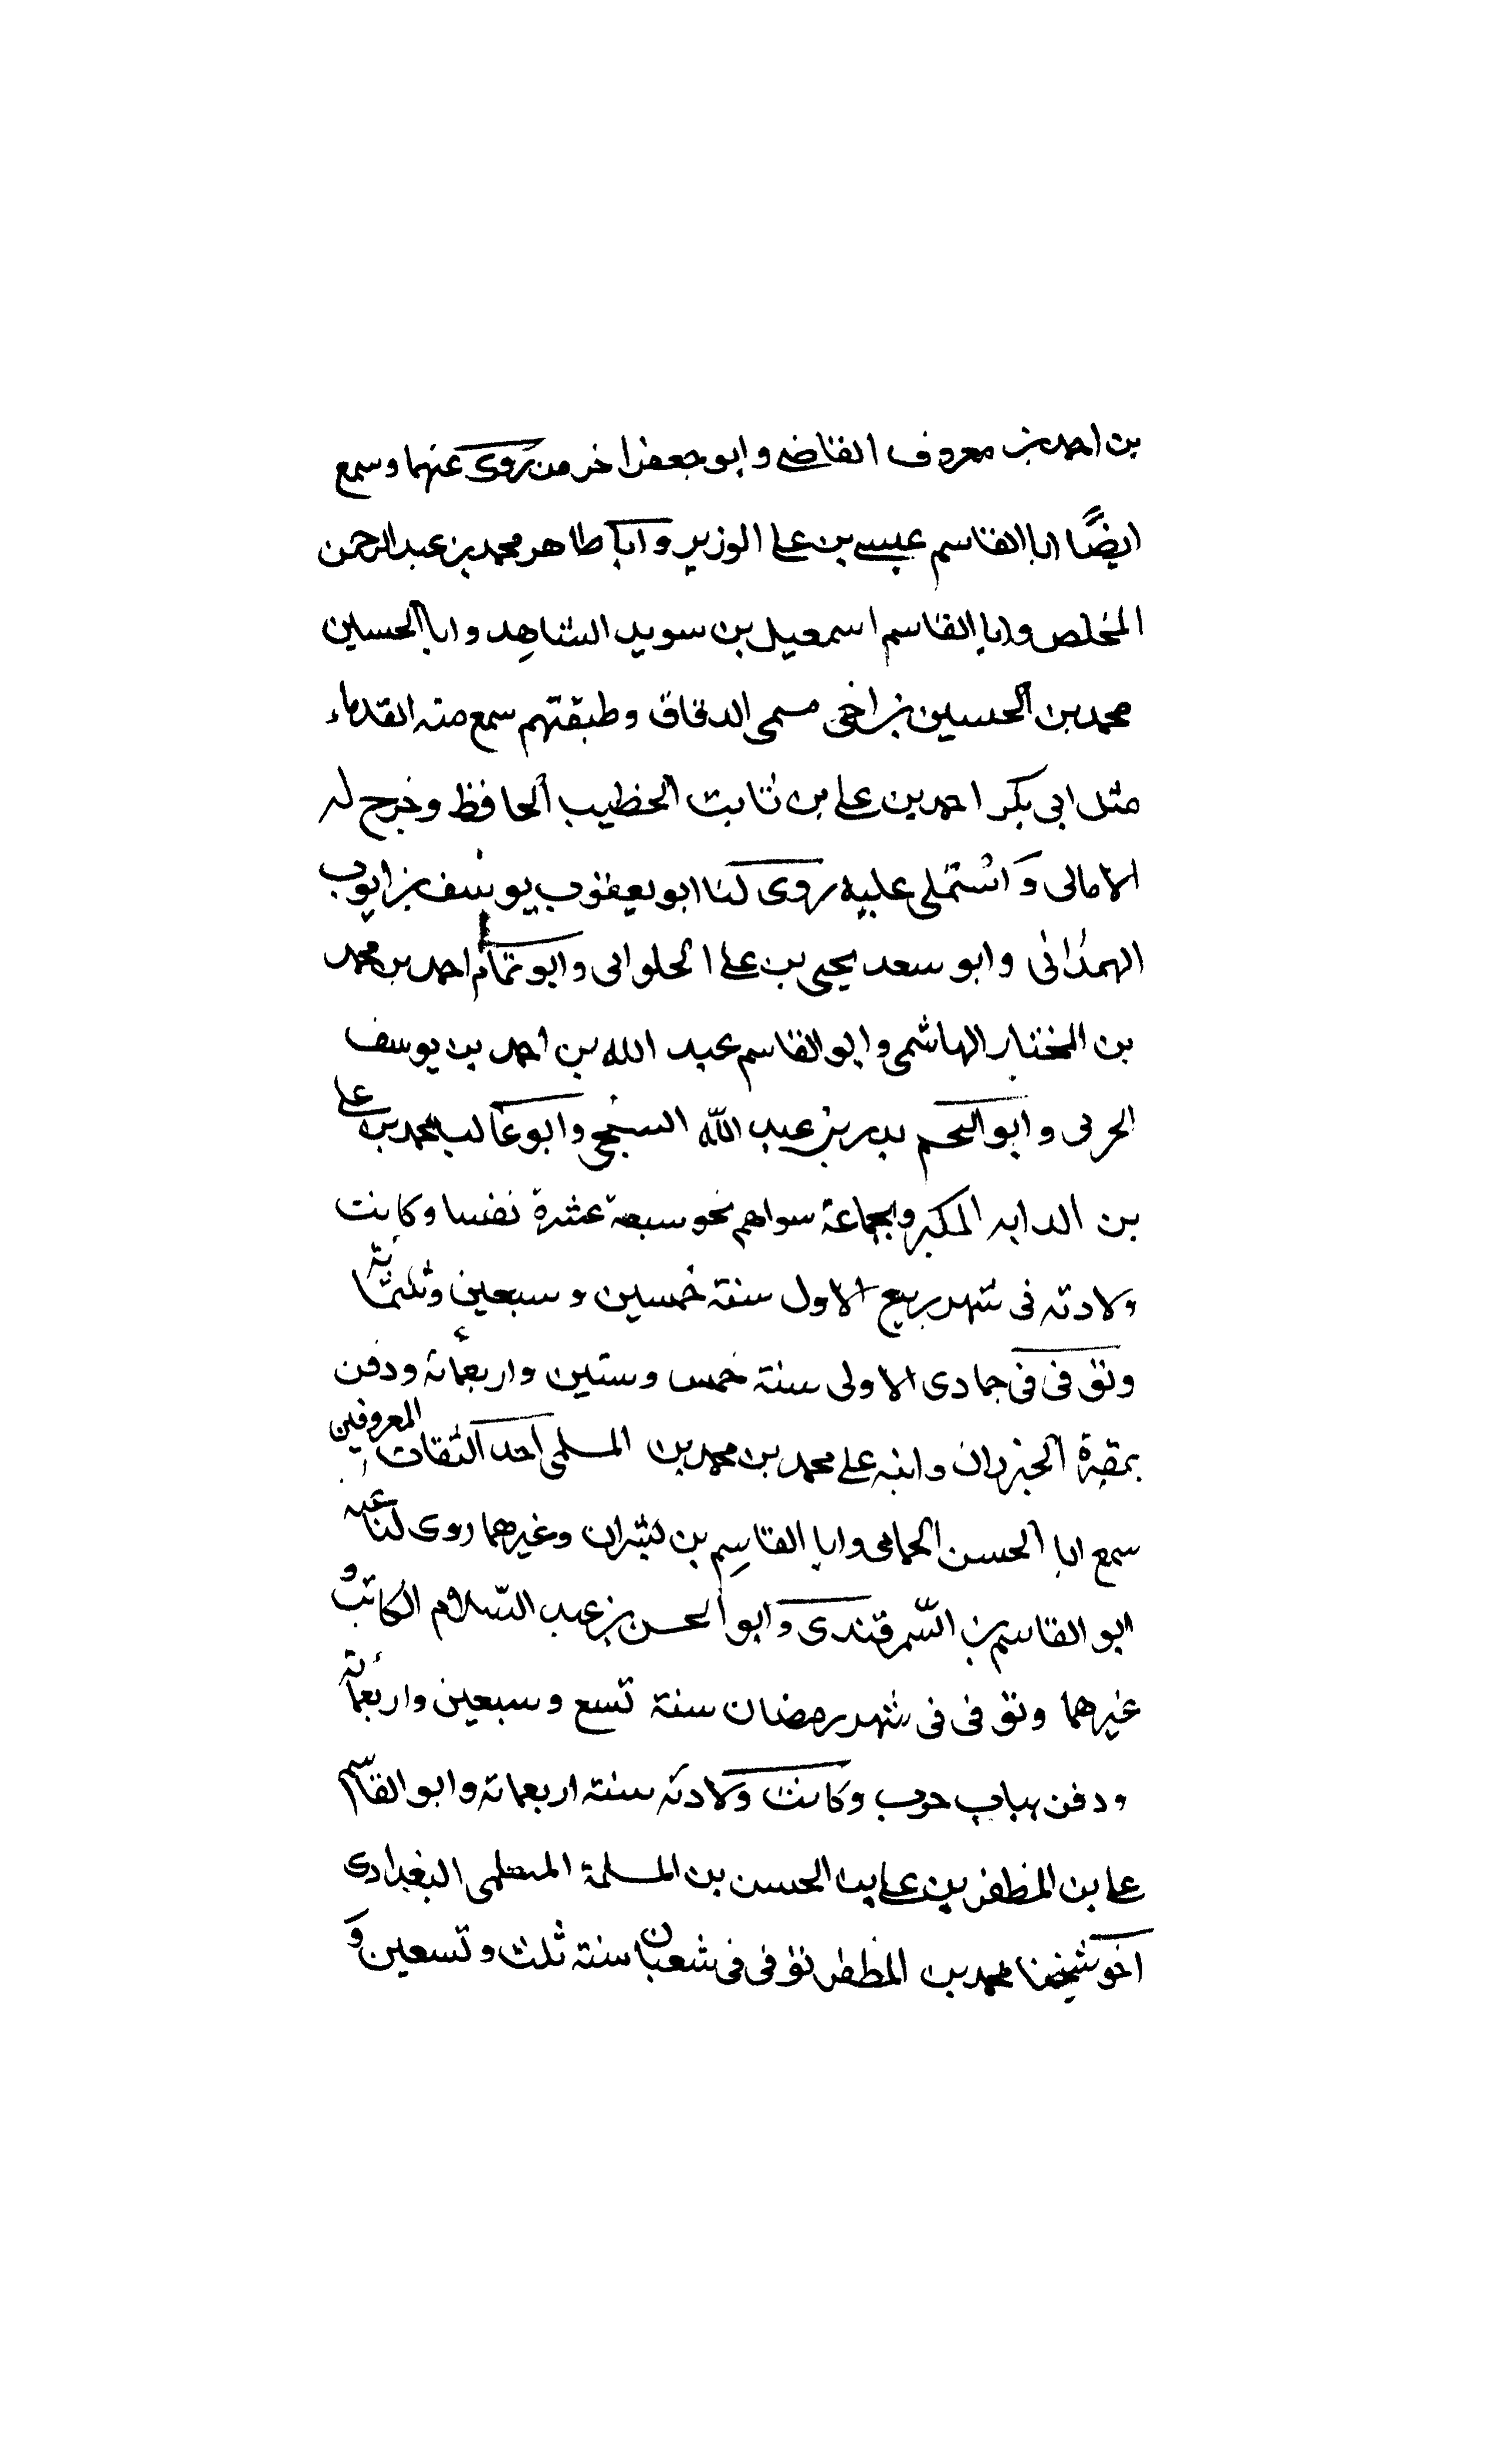 بن احمد بن معروف القاضي وابو جعفر اخر من روى عنهما وسمع
ايضًا ابا القاسم عيسى بن على الوزير وابا طاهر محمد بن عبد الرحمن
المخلص وابا القاسم اسمعيل بن سويد الشاهد وابا الحسين
محمد بن الحسين بن اخى مسمى الدقاق وطبقتهم سمع منه القدماء
مثل ابى بكر احمد بن على بن ثابت الخطيب الحافظ وخرج له
الامالى واستملى عليه روى لنا ابو يعقوب يوسف بن ايوب
الهمذانى وابو سعد يحيى بن على الحلوانى وابو تمام احمد بن محمد
بن المختار الهاشمى وابو القاسم عبد الله بن احمد بن يوسف
الحربى وابو النجم بدر بن عبد الله السنجى وابو غالب محمد بن على
بن الدايه المكبر وجماعة سواهم نحو سبعة عشرة نفسا وكانت
ولادته فى شهر ربيع الاول سنة خمسين وسبعين وثلثمائة
وتوفى فى جمادى الاولى سنة خمس وستين واربعمائة ودفن
بمقبرة الخيزران وابنه على محمد بن محمد بن المسلمى احد الثقات المعروفين
سمع ابا الحسن الحمامى وابا القاسم بن بشران وغيرهما روى لنا عنه
ابو القاسم بن السّمرقندى وابو الحسن بن عبد السّلام الكاتب و
غيرهما وتوفى فى شهر رمضان سنة تسع وسبعين واربعمائة
ودفن بباب حرب وكانت ولادته سنة اربعمائة وابو القاسم
على بن المظفر بن على بن الحسن بن المسلمة المسلمى البغدادى
اخو شيخنا محمد بن المظفر توفى فى شعبان سنة ثلث وتسعين و